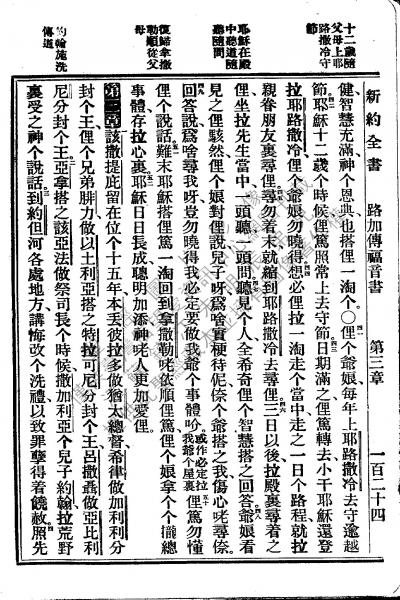 新約全書　路加傳福音書　第三章　一百二十四
十二歲隨父母上耶路撒冷守節
健智慧充滿、神个恩典也搭俚一淘个、○俚个爺娘、每年上耶路撒冷去守逾越
節、耶穌十二歲个時候俚篤照常上去守節、日期滿之俚篤轉去小干耶穌還登
拉耶路撒冷俚个爺娘勿曉得、想必俚拉一淘走个當中走之一日个路程就拉
耶穌在殿中聽道隨聽隨問
親眷朋友裏尋俚、尋勿着末就縮到耶路撒冷去尋俚、三日以後拉殿裏尋着之
俚坐拉先生當中一頭聽一頭問、聽見个人全希奇俚个智慧搭之回答、爺娘看
見之俚駭然俚个娘對俚說兒子呀爲啥實梗待伲个爺搭之我傷心咾尋
回答說爲啥尋我呀豈勿曉得我必定要做我爺个事體或作必定拉我爺个屋裏俚篤勿懂
復歸拿撒勒順從父母
俚个說話、難末耶穌搭俚篤一淘回到拿撒勒咾依順俚篤俚个娘拿个个攏總
事體存拉心裏、耶穌日日長成聰明加添神咾人更加愛俚、
第三章　該撒提庇留在位个十五年本丟彼拉多做猶太總督希律做加利利分
封个王俚个兄弟腓力做以土利亞搭之特拉可尼分封个王呂撒聶做亞比利
約翰施洗傳道
尼分封个王、亞拿搭之該亞法做祭司長个時候、撒加利亞个兒子約翰拉荒野
裏受之神个說話、到約但河各處地方、講悔改个洗禮、以致罪孽得着饒赦、照先